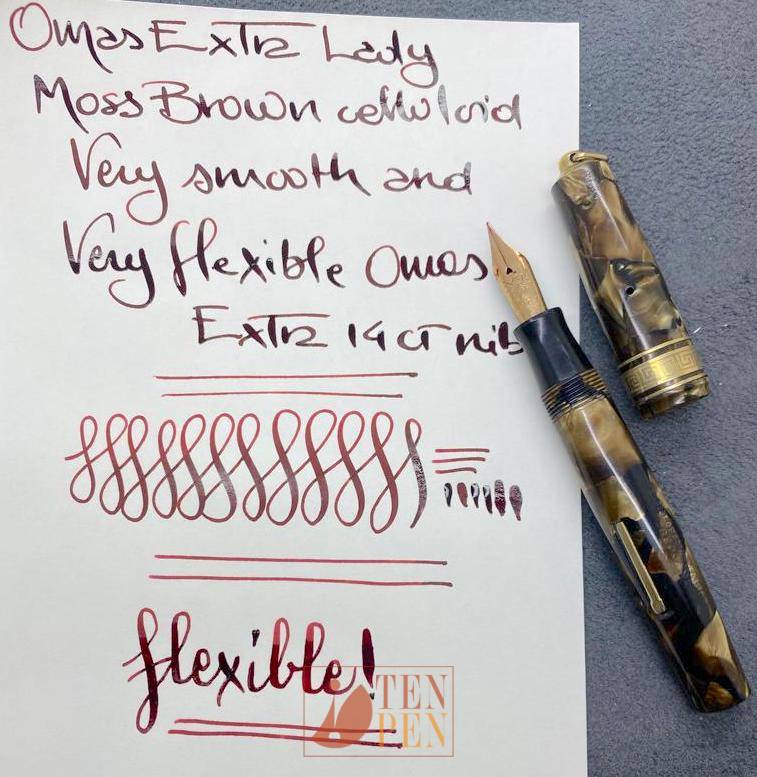 Omas Extra Lady
Moss Brown celluloid
Very smooth and
Very flexible Omas
Extra 14 ct nib
flexible!
TEN
PEN